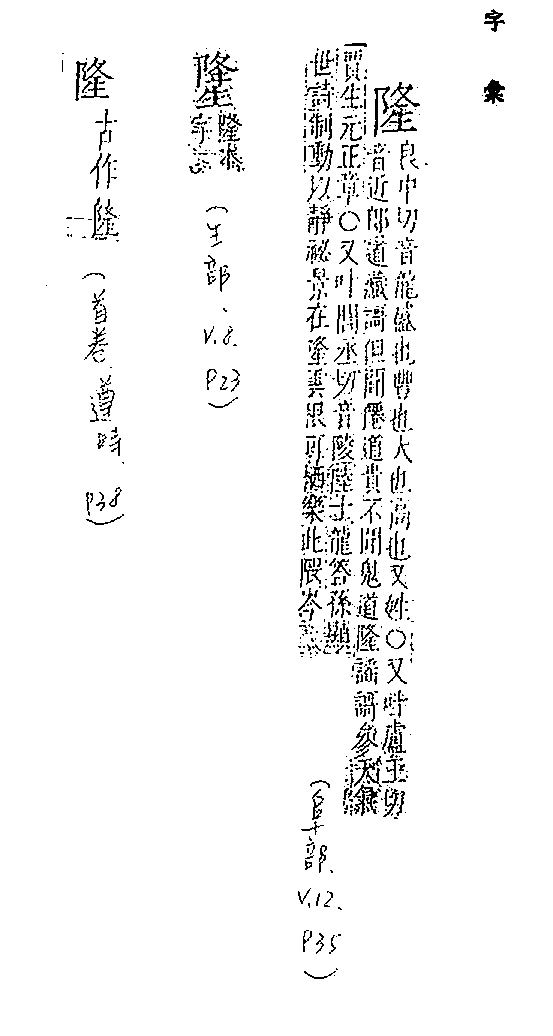 字彙
隆
良中切音龍盛也豐也大也高也又姓○又叶盧王切
音近郎道藏謌但聞僊道貴不聞鬼道隆謠謌參天
賈生元正章○又叶閭丞切音陵陸士龍答孫顯
世詩制動以靜祕景在隆雲根可栖樂此隈岑
(阜部、V.12、P35)
隆
隆本字
(生部、V.8、P23)
隆
古作
(首卷 遵時 P38)